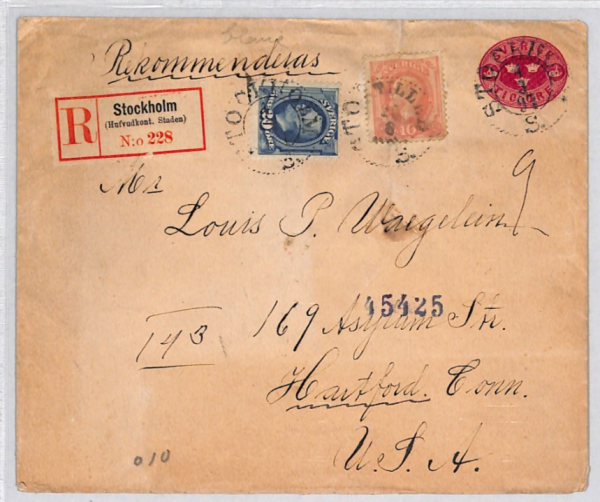 Rekommenderas
R
Stockholm
(Hufvudkont. Staden)
N:o 228
SVERIGE
20
SVERIGE
10
SVERIGE
TIO ÖRE
Mr
Louis P. Waegelein
45425
143
169 Asylum Str.
Hartford. Conn.
U.S.A.
010